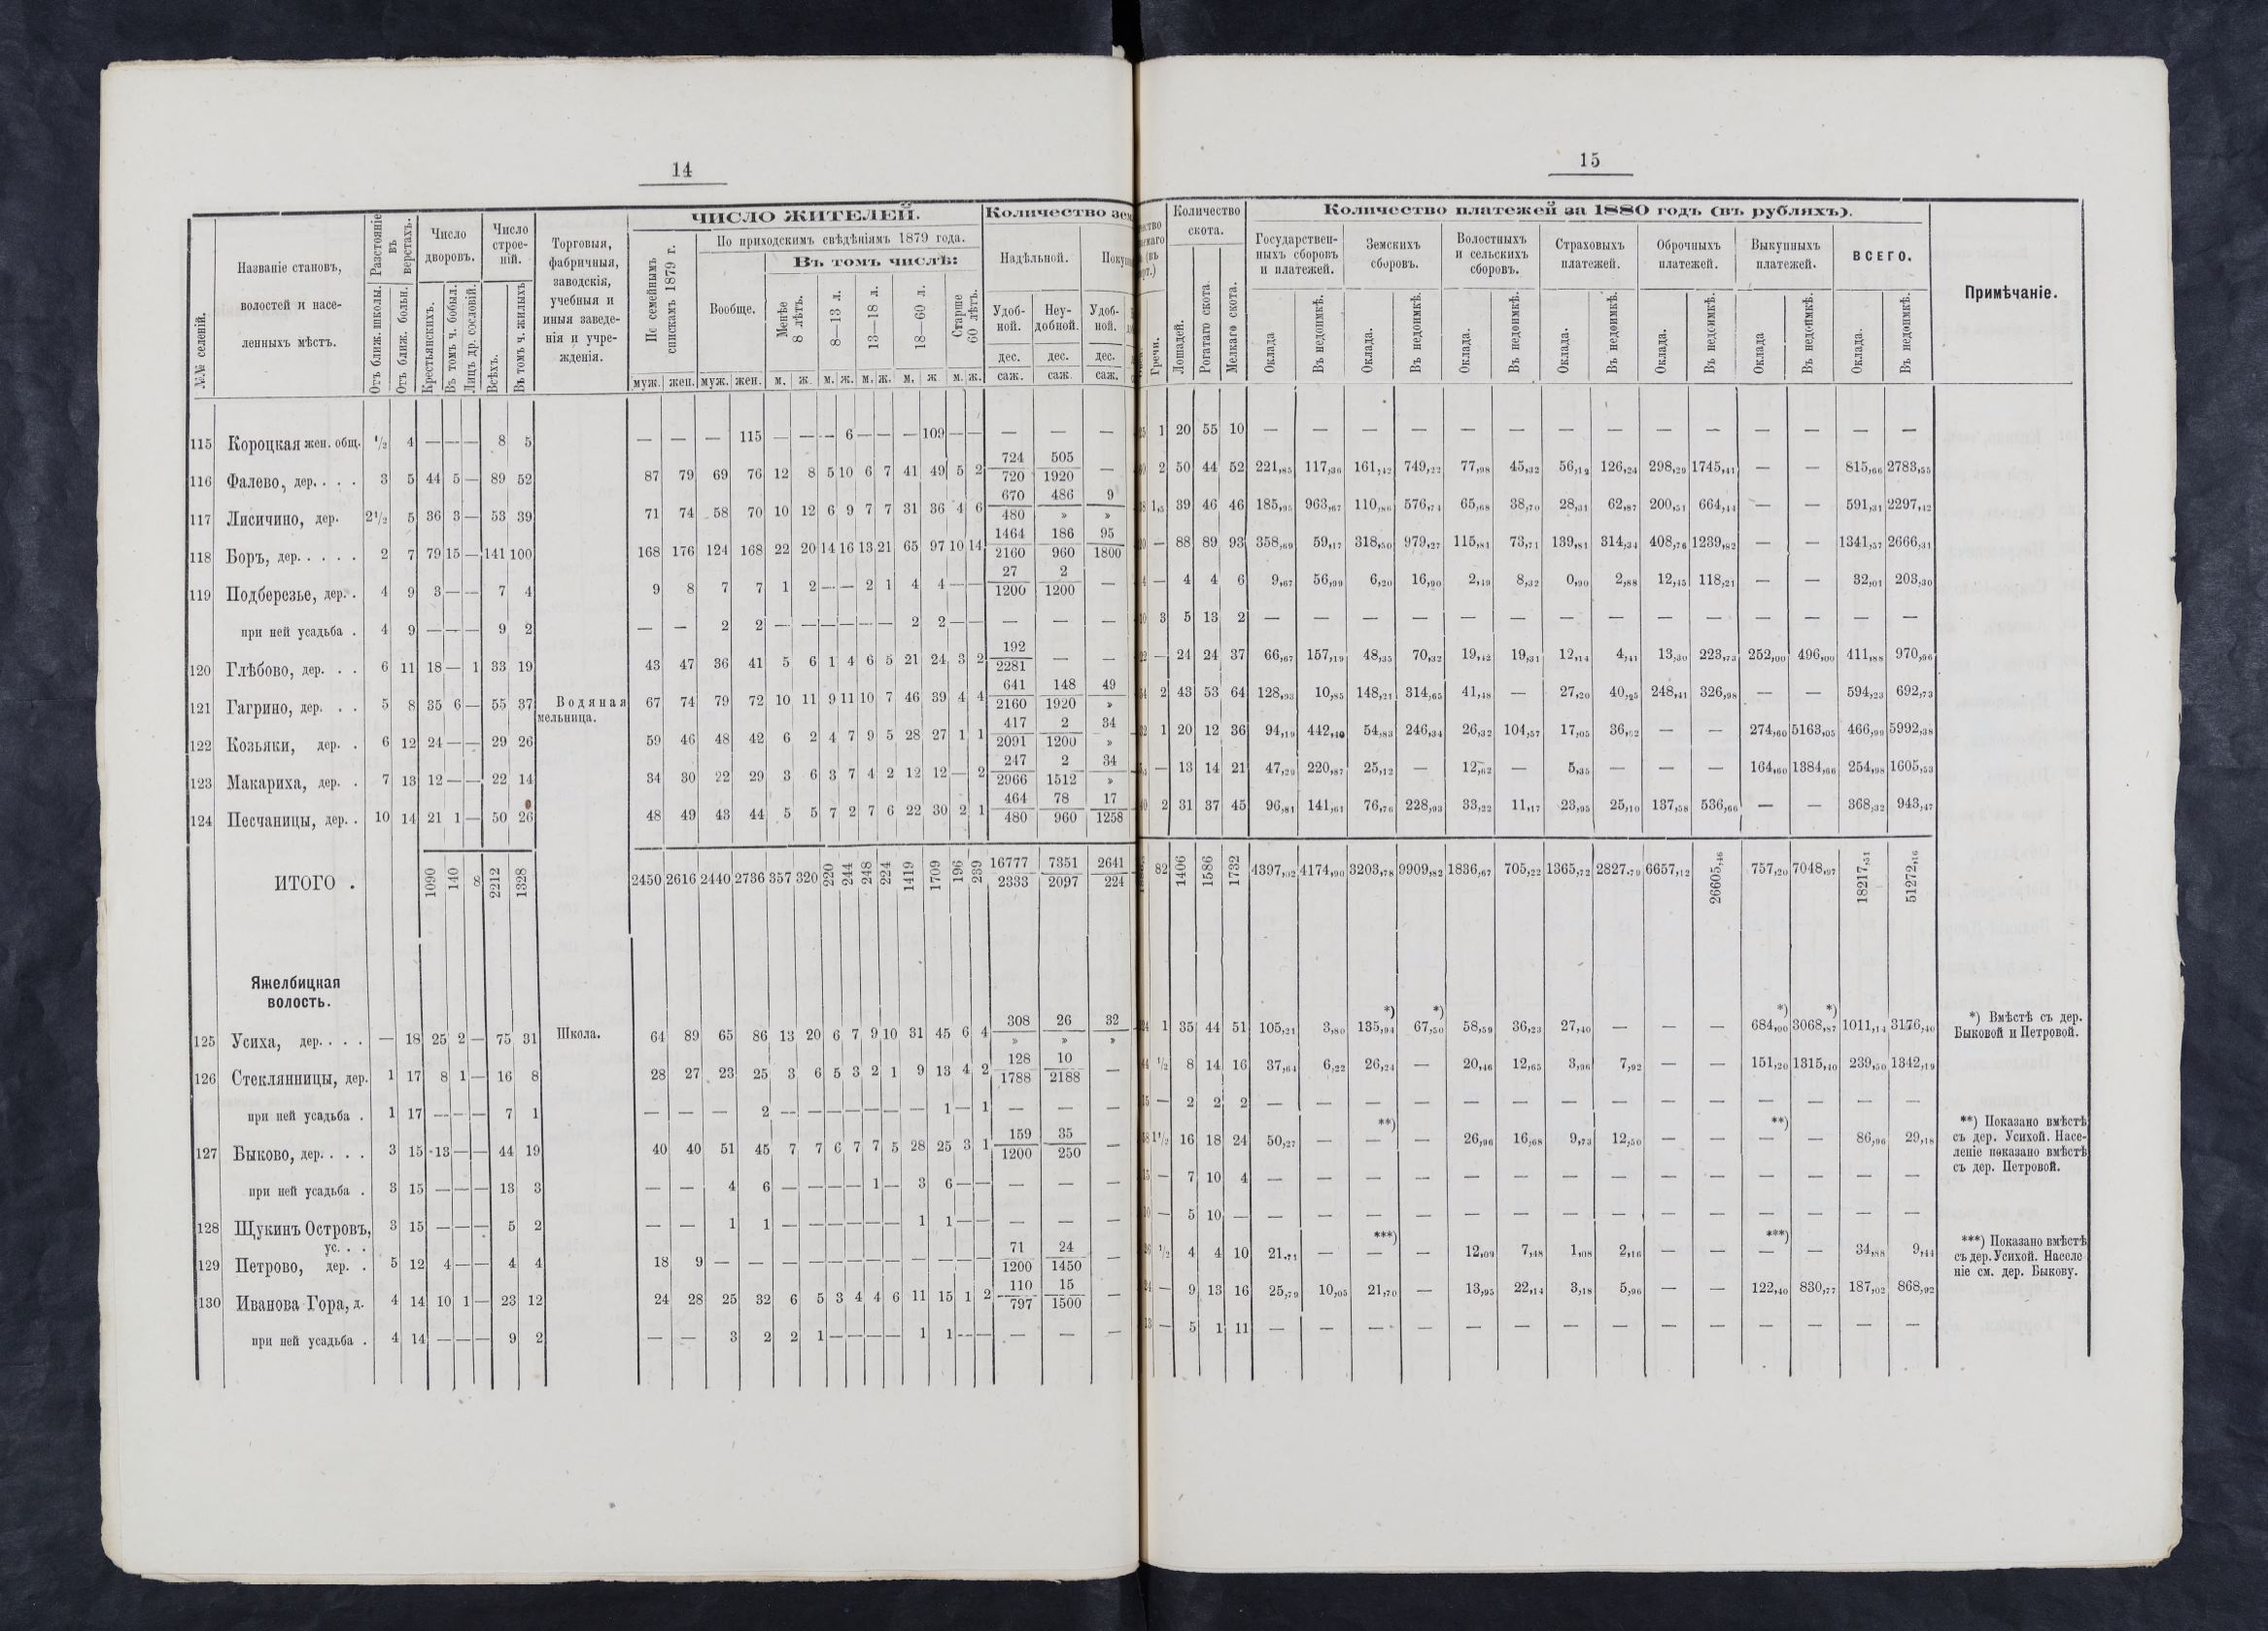 14
№№ селеній.
Названіе становъ,
волостей и насе-
ленныхъ мѣстъ.
Разстояніе
въ
верстахъ.
Отъ ближ. школы.
Отъ ближ. больн.
Число
дворовъ.
Крестьянскихъ.
Въ томъ ч. бобыл.
Лицъ др. сословій.
Число
строе-
ній.
Всѣхъ.
Въ томъ ч. жилыхъ
Торговыя,
фабричныя,
заводскія,
учебныя и
иныя заведе-
нія и учре-
жденія.
ЧИСЛО ЖИТЕЛЕЙ.
По семейнымъ
спискамъ 1879 г.
По приходскимъ свѣдѣніямъ 1879 года.
Вообще.
Въ томъ числѣ:
Менѣе
8 лѣтъ.
8—13 л.
13—18 л.
18—60 л.
Старше
60 лѣтъ.
муж. жен. муж. жен. м. ж. м. ж. м. ж. м. ж м. ж.
Количество
Надѣльной.
Удоб-
ной.
Неу-
добной.
Удоб-
ной.
дес. дес. дес.
саж. саж. саж.
115 Короцкая жен. общ. 1/2 4 — — — 8 5 — — — 115 — — — 6 — — — 109 — — — — —
116 Фалево, дер. . . . 3 5 44 5 — 89 52 87 79 69 76 12 8 5 10 6 7 41 49 5 2 724/720 505/1920 —
117 Лисичино, дер. 2 1/2 5 36 3 — 53 39 71 74 58 70 10 12 6 9 7 7 31 36 4 6 670/480 486/» 9/»
118 Боръ, дер. . . . . 2 7 79 15 — 141 100 168 176 124 168 22 20 14 16 13 21 65 97 10 14 1464/2160 186/960 95/1800
119 Подберезье, дер. . 4 9 3 — — 7 4 9 8 7 7 1 2 — — 2 1 4 4 — — 27/1200 2/1200 —
при ней усадьба . 4 9 — — — 9 2 — — 2 2 — — — — — — 2 2 — — — — —
120 Глѣбово, дер. . . 6 11 18 — 1 33 19 43 47 36 41 5 6 1 4 6 5 21 24 3 2 192/2281 — —
121 Гагрино, дер. . . 5 8 35 6 — 55 37 Водяная 67 74 79 72 10 11 9 11 10 7 46 39 4 4 641/2160 148/1920 49/»
мельница.
122 Козьяки, дер. . 6 12 24 — — 29 26 59 46 48 42 6 2 4 7 9 5 28 27 1 1 417/2091 2/1200 34/»
123 Макариха, дер. . 7 13 12 — — 22 14 34 30 22 29 3 6 3 7 4 2 12 12 — 2 247/2966 2/1512 34/»
124 Песчаницы, дер. . 10 14 21 1 — 50 26 48 49 43 44 5 5 7 2 7 6 22 30 2 1 464/480 78/960 17/1258
ИТОГО . 1090 140 8 2212 1328 2450 2616 2440 2736 357 320 220 244 248 224 1419 1709 196 239 16777/2333 7351/2097 2641/224
Яжелбицкая
волость.
125 Усиха, дер. . . . — 18 25 2 — 75 31 Школа. 64 89 65 86 13 20 6 7 9 10 31 45 6 4 308/» 26/» 32/»
126 Стеклянницы, дер. 1 17 8 1 — 16 8 28 27 23 25 3 6 5 3 2 1 9 13 4 2 128/1788 10/2188 —
при ней усадьба . 1 17 — — — 7 1 — — — 2 — — — — — — — 1 — 1 — — —
127 Быково, дер. . . . 3 15 13 — — 44 19 40 40 51 45 7 7 6 7 7 5 28 25 3 1 159/1200 35/250 —
при ней усадьба . 3 15 — — — 13 3 — — 4 6 — — — — 1 — 3 6 — — — — —
128 Щукинъ Островъ, 3 15 — — — 5 2 — — 1 1 — — — — — — 1 1 — — — — —
ус. . .
129 Петрово, дер. . 5 12 4 — — 4 4 18 9 — — — — — — — — — — — — 71/1200 24/1450 —
130 Иванова Гора, д. 4 14 10 1 — 23 12 24 28 25 32 6 5 3 4 4 6 11 15 1 2 110/797 15/1500 —
при ней усадьба . 4 14 — — — 9 2 — — 3 2 2 1 — — — — 1 1 — — — — —
15
Гречи.
Количество
скота.
Лошадей.
Рогатаго скота.
Мелкаго скота.
Количество платежей за 1880 годъ (въ рубляхъ).
Государствен-
ныхъ сборовъ
и платежей.
Земскихъ
сборовъ.
Волостныхъ
и сельскихъ
сборовъ.
Страховыхъ
платежей.
Оброчныхъ
платежей.
Выкупныхъ
платежей.
ВСЕГО.
Оклада Въ недоимкѣ. Оклада. Въ недоимкѣ. Оклада. Въ недоимкѣ. Оклада. Въ недоимкѣ. Оклада. Въ недоимкѣ. Оклада Въ недоимкѣ. Оклада. Въ недоимкѣ.
Примѣчаніе.
1 20 55 10 — — — — — — — — — — — — — —
2 50 44 52 221,85 117,36 161,42 749,22 77,98 45,32 56,12 126,24 298,29 1745,41 — — 815,66 2783,55
1,5 39 46 46 185,95 963,67 110,86 576,74 65,68 38,70 28,31 62,87 200,51 664,44 — — 591,31 2297,42
— 88 89 93 358,69 59,17 318,50 979,27 115,81 73,71 139,81 314,34 408,76 1239,82 — — 1341,57 2666,31
— 4 4 6 9,67 56,99 6,20 16,90 2,49 8,32 0,90 2,88 12,45 118,21 — — 32,01 203,30
3 5 13 2 — — — — — — — — — — — — — —
— 24 24 37 66,67 157,19 48,35 70,32 19,42 19,31 12,14 4,41 13,30 223,73 252,00 496,00 411,88 970,96
2 43 53 64 128,93 10,85 148,21 314,65 41,48 — 27,20 40,25 248,41 326,98 — — 594,23 692,73
1 20 12 36 94,19 442,40 54,83 246,34 26,32 104,57 17,05 36,52 — — 274,60 5163,05 466,99 5992,38
— 13 14 21 47,29 220,87 25,12 — 12,62 — 5,35 — — — 164,60 1384,66 254,98 1605,53
2 31 37 45 96,81 141,61 76,76 228,93 33,22 11,17 23,95 25,10 137,58 536,66 — — 368,32 943,47
82 1406 1586 1732 4397,02 4174,90 3203,78 9909,82 1836,67 705,22 1365,72 2827,79 6657,12 26605,46 757,20 7048,97 18217,51 51272,16
*) *) *) *)
1 35 44 51 105,21 3,80 135,94 67,50 58,59 36,23 27,40 — — — 684,00 3068,87 1011,14 3176,40
*) Вмѣстѣ съ дер.
Быковой и Петровой.
1/2 8 14 16 37,64 6,22 26,24 — 20,46 12,65 3,96 7,92 — — 151,20 1315,40 239,50 1342,19
— 2 2 2 — — — — — — — — — — — — — —
**) **)
1 1/2 16 18 24 50,27 — — — 26,96 16,68 9,73 12,50 — — — — 86,96 29,18
**) Показано вмѣстѣ
съ дер. Усихой. Насе-
леніе показано вмѣстѣ
съ дер. Петровой.
— 7 10 4 — — — — — — — — — — — — — —
— 5 10 — — — — — — — — — — — — — — —
***) ***)
1/2 4 4 10 21,71 — — — 12,09 7,48 1,08 2,16 — — — — 34,88 9,44
***) Показано вмѣстѣ
съ дер. Усихой. Населе
ніе см. дер. Быкову.
— 9 13 16 25,79 10,05 21,70 — 13,95 22,14 3,18 5,96 — — 122,40 830,77 187,02 868,92
— 5 1 11 — — — — — — — — — — — — — —